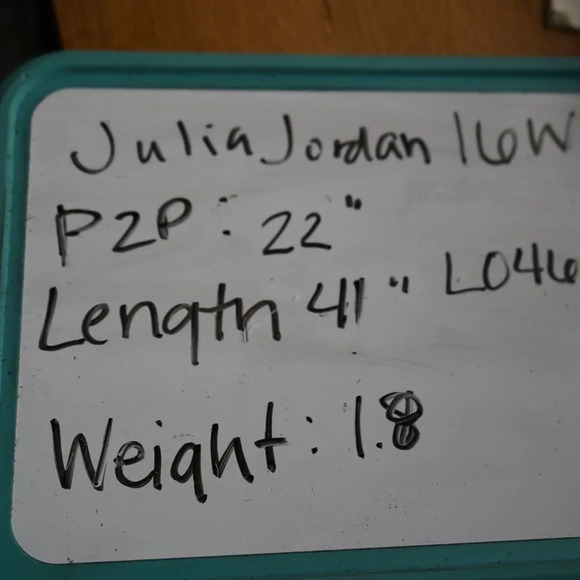 Julia Jordan 16W
P2P: 22"
Length 41" L046
Weight: 1.8